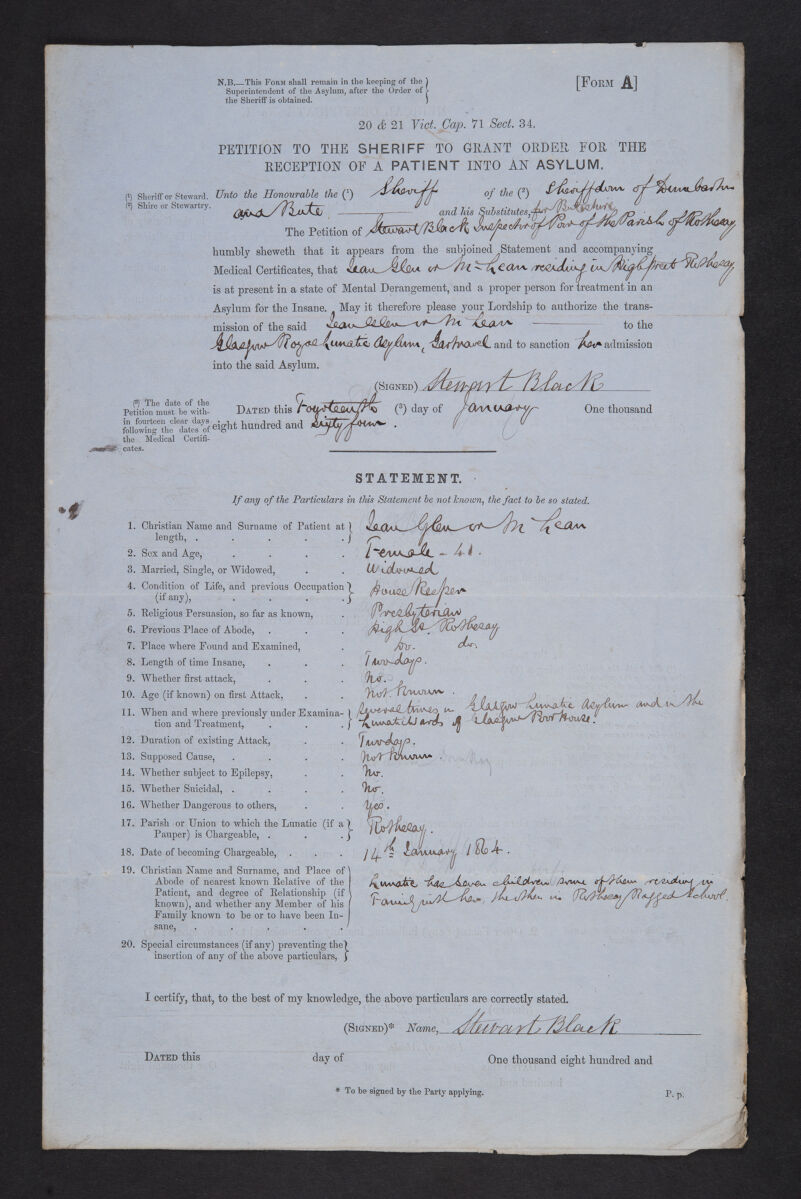 N.B.—This Form shall remain in the keeping of the
Superintendent of the Asylum, after the Order of
the Sheriff is obtained.
[Form A]
20 & 21 Vict. Cap. 71 Sect. 34.
PETITION TO THE SHERIFF TO GRANT ORDER FOR THE
RECEPTION OF A PATIENT INTO AN ASYLUM.
(1) Sheriff or Steward.
(2) Shire or Stewartry.
Unto the Honourable the (1) Sheriff of the (2) Sheriffdom of Dumbarton
and Bute and his Substitutes, for Buteshire
The Petition of Stewart Black Inspector of Poor of the Parish of Rothesay
humbly sheweth that it appears from the subjoined Statement and accompanying
Medical Certificates, that Jean Glen or McLean residing in High Street Rothesay
is at present in a state of Mental Derangement, and a proper person for treatment in an
Asylum for the Insane. May it therefore please your Lordship to authorize the trans-
mission of the said Jean Glen or McLean to the
Glasgow Royal Lunatic Asylum, Gartnavel and to sanction her admission
into the said Asylum.
(Signed) Stewart Black
(3) The date of the
Petition must be with-
in fourteen clear days
following the dates of
the Medical Certifi-
cates.
Dated this Fourteenth (3) day of January One thousand
eight hundred and sixty four.
STATEMENT.
If any of the Particulars in this Statement be not known, the fact to be so stated.
1. Christian Name and Surname of Patient at
length, . . . . . Jean Glen or McLean
2. Sex and Age, . . . . Female - 41.
3. Married, Single, or Widowed, . . Widowed
4. Condition of Life, and previous Occupation
(if any), . . . . House Keeper
5. Religious Persuasion, so far as known, . Presbyterian
6. Previous Place of Abode, . . . High St. Rothesay
7. Place where Found and Examined, . Do. do.
8. Length of time Insane, . . . Two days.
9. Whether first attack, . . . No.
10. Age (if known) on first Attack, . . Not Known.
11. When and where previously under Examina-
tion and Treatment, . . . Several times in Glasgow Lunatic Asylum and in the
Lunatic Wards of Glasgow Poor House.
12. Duration of existing Attack, . . Two days.
13. Supposed Cause, . . . . Not Known
14. Whether subject to Epilepsy, . . No.
15. Whether Suicidal, . . . . No.
16. Whether Dangerous to others, . . Yes.
17. Parish or Union to which the Lunatic (if a
Pauper) is Chargeable, . . . Rothesay.
18. Date of becoming Chargeable, . . . 14th January 1864.
19. Christian Name and Surname, and Place of
Abode of nearest known Relative of the
Patient, and degree of Relationship (if
known), and whether any Member of his
Family known to be or to have been In-
sane, . . . . .
Lunatic has seven children some of them residing in
Family with her, the other in Rothesay Ragged School.
20. Special circumstances (if any) preventing the
insertion of any of the above particulars,
I certify, that, to the best of my knowledge, the above particulars are correctly stated.
(Signed)* Name, Stewart Black
Dated this day of One thousand eight hundred and
* To be signed by the Party applying.
P. p.